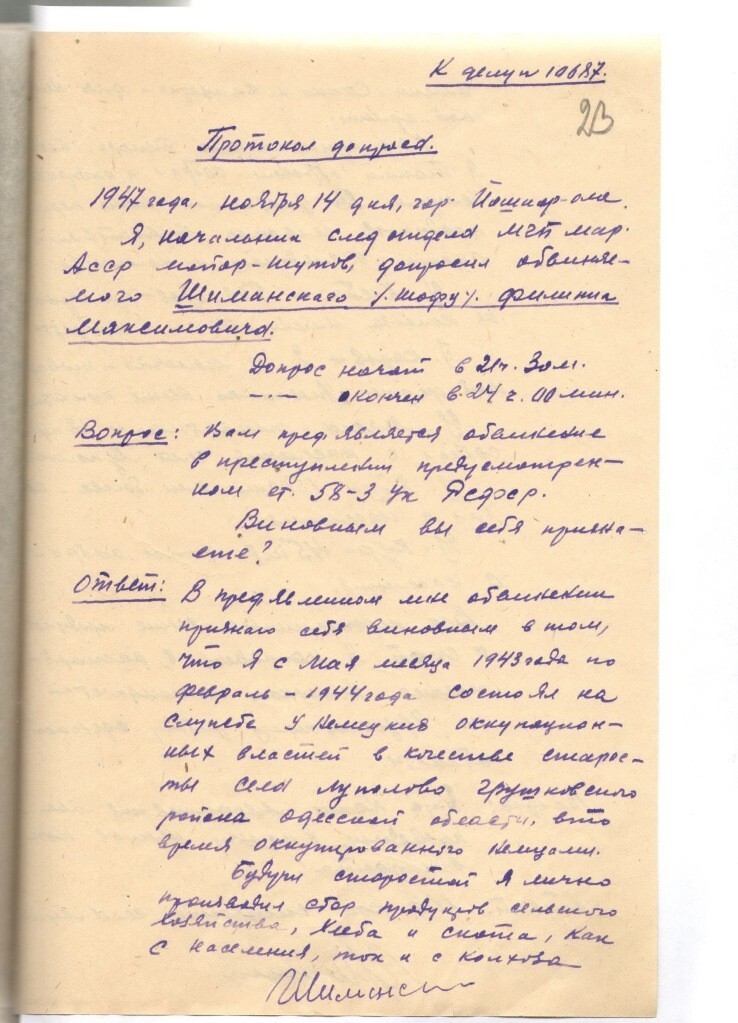 К делу № 10687.
23
Протокол допроса.
1947 года, ноября 14 дня, гор. Йошкар-ола.
Я, начальник след отдела МГБ мар.
Асср майор-шутов, допросил обвиняе-
мого Шиманского /. Шофру /. Филиппа
Максимовича.
Допрос начат в 21 ч. 30 м.
-"- окончен в 24 ч. 00 мин.
Вопрос: Вам пред'является обвинение
в преступлении предусмотрен-
ном ст. 58-3 Ук Рсфср.
Виновным вы себя призна-
ете?
Ответ: В пред'явленном мне обвинении
признаю себя виновным в том,
что я с Мая месяца 1943 года по
февраль - 1944 года состоял на
службе у немецких оккупацион-
ных властей в качестве старос-
ты села Луполово Грушковского
района одесской области, в то
время оккупированного немцами.
Будучи старостой я лично
производил сбор продуктов сельского
хозяйства, хлеба и скота, как
с населения, так и с колхоза
Шиманс